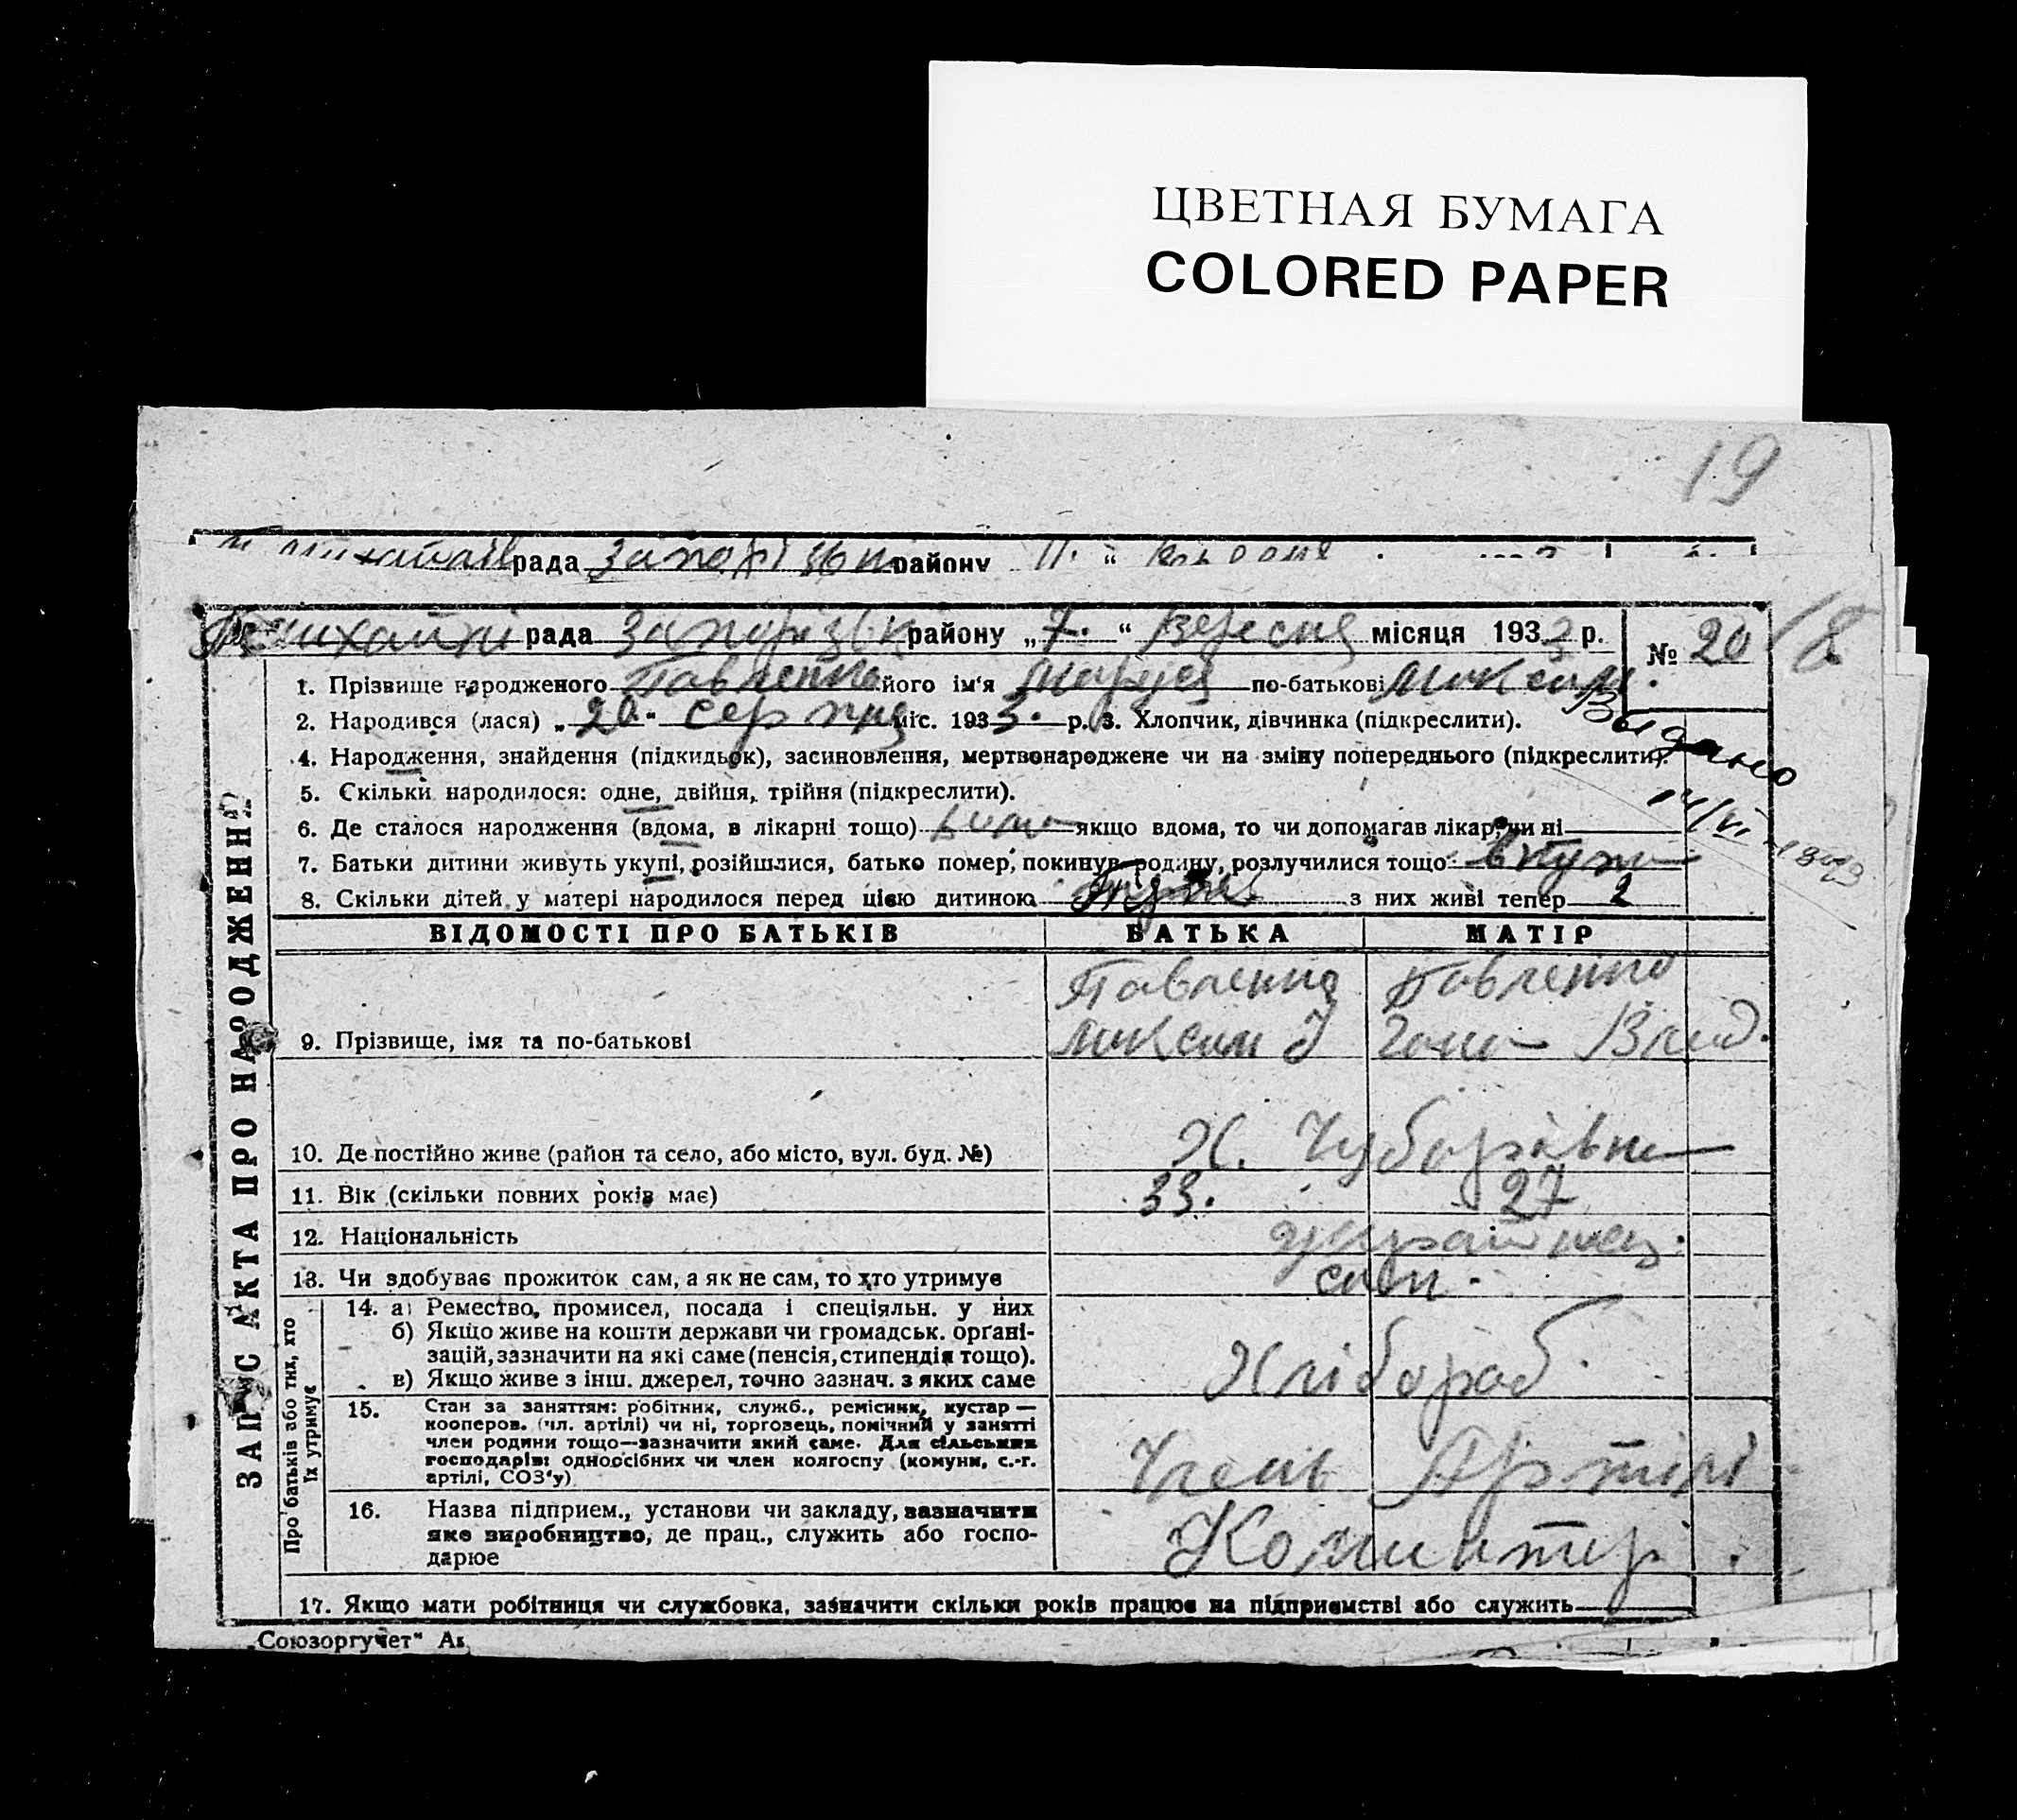 ЦВЕТНАЯ БУМАГА
COLORED PAPER
19
рада району 11. "
рада Запорізьк району „7." Вересня місяця 1933 р. № 20 18
1. Прізвище народженого Павленко його ім'я Маруся по-батькові Максим.
2. Народився (лася) „20." серпня міс. 1933. р. 3. Хлопчик, дівчинка (підкреслити).
Видано
4. Народження, знайдення (підкидьок), засиновлення, мертвонароджене чи на зміну попереднього (підкреслити).
5. Скільки народилося: одне, двійня, трійня (підкреслити).
14/VI
6. Де сталося народження (вдома, в лікарні тощо) якщо вдома, то чи допомагав лікар, чи ні
7. Батьки дитини живуть укупі, розійшлися, батько помер, покинув родину, розлучилися тощо вкупі
8. Скільки дітей у матері народилося перед цією дитиною з них живі тепер 2
ВІДОМОСТІ ПРО БАТЬКІВ БАТЬКА МАТІР
Павленко Павленко
9. Прізвище, імя та по-батькові Максим Влад.
10. Де постійно живе (район та село, або місто, вул. буд. №) Х.
11. Вік (скільки повних років має) 33. 27
12. Національність українец.
13. Чи здобуває прожиток сам, а як не сам, то хто утримує сам.
14. а) Ремество, промисел, посада і спеціяльн. у них
б) Якщо живе на кошти держави чи громадськ. організацій, зазначити на які саме (пенсія, стипендія тощо).
в) Якщо живе з інш. джерел, точно зазнач. з яких саме Хлібороб.
15. Стан за заняттям: робітник, служб., ремісник, кустар —
кооперов. (чл. артілі) чи ні, торговець, помічний у занятті
член родини тощо—зазначити який саме. Для сільських
господарів: одноосібних чи член колгоспу (комуни, с.-г.
артілі, СОЗ'у) Член Артілі
16. Назва підприєм., установи чи закладу, зазначити
яке виробництво, де прац., служить або господарює Коминтер
17. Якщо мати робітниця чи службовка, зазначити скільки років працює на підприємстві або служить
ЗАПИС АКТА ПРО НАРОДЖЕННЯ
Про батьків або тих, хто їх утримує
„Союзоргучет"